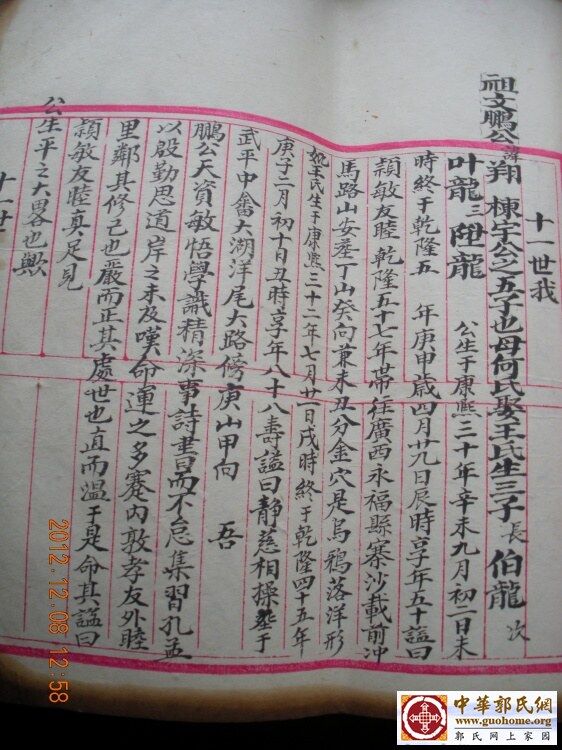 十一世我
祖文鹏公諱翔棟宇公之五子也母何氏娶王氏生三子長伯龍次
叶龍三陞龍 公生于康熙三十年辛未九月初二日未
時終于乾隆五 年庚申歲四月廿九日辰時享年五十謚曰
頴敏友睦乾隆五十七年帶往廣西永福縣寨沙載前冲
馬路山安塟丁山癸向兼未丑分金穴是烏鴉落洋形
妣王氏生于康熙三十二年七月廿一日戌時終于乾隆四十五年
庚子二月初十日丑時享年八十八壽謚曰靜慈相操塟于
武平中畲大湖洋尾大路傍庚山甲向 吾
鵬公天資敏悟學識精深事詩書而不怠集習孔孟
以啟勤思道岸之未及嘆命運之多蹇内敦孝友外睦
里鄰其修己也嚴而正其處世也直而溫于是命其謚曰
頴敏友睦真足見
公生平之大畧也歟
十一世
2012.12.08 12:58
中華郭氏網
www.guohome.org
郭氏网上家园